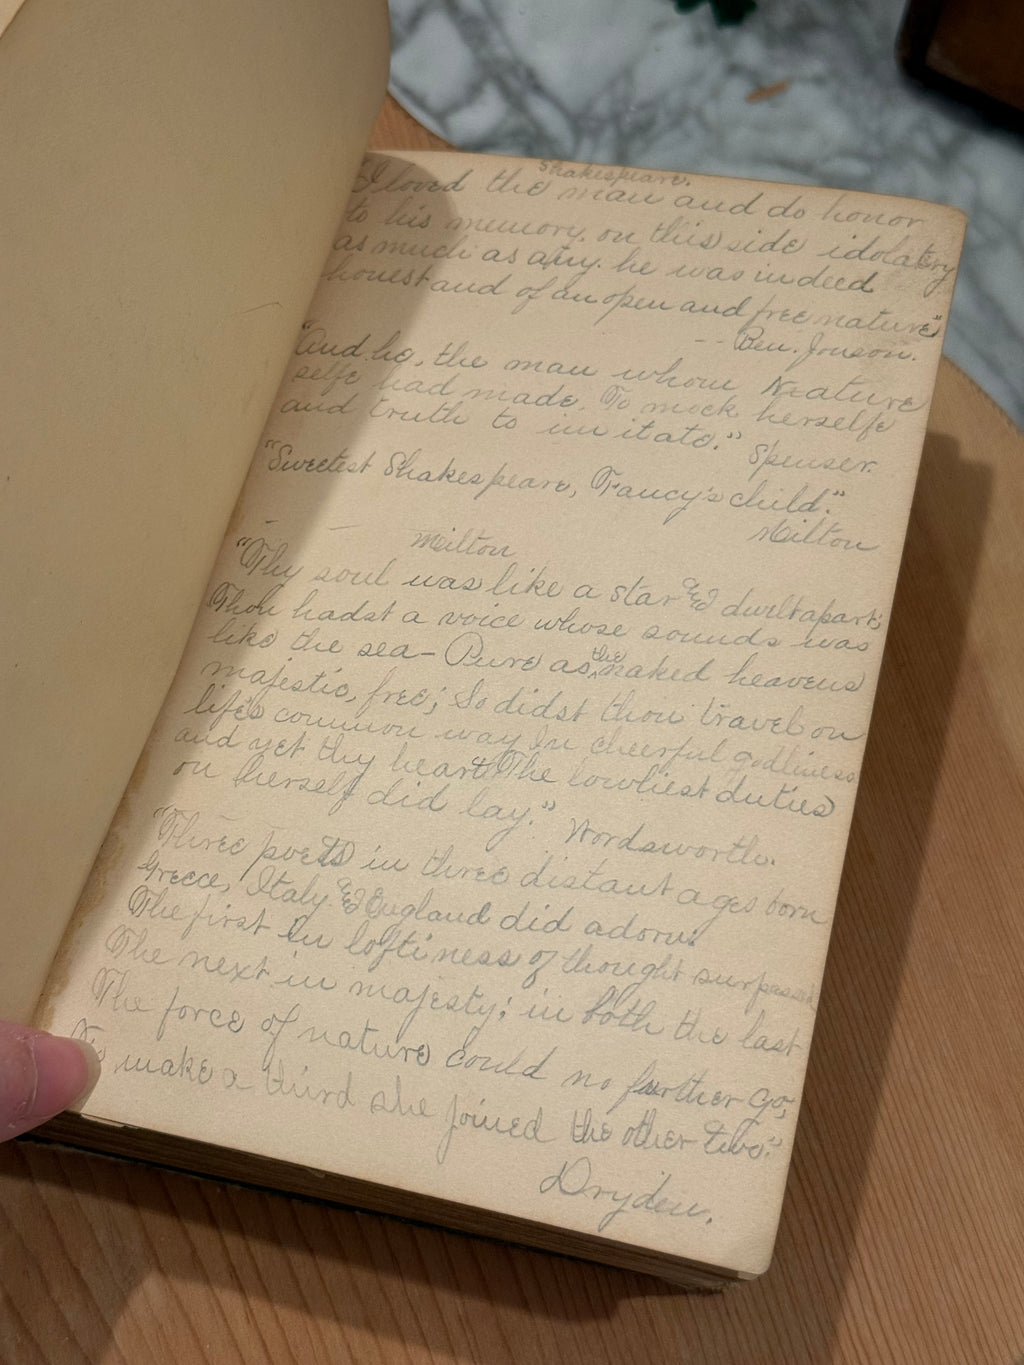 Shakespeare.
I loved the man and do honor
to his memory, on this side idolatry
as much as any. he was indeed
honest and of an open and free nature"
-- Ben. Jonson.
"And he, the man whom Nature
selfe had made. To mock herselfe
and truth to imitate." Spenser.
"Sweetest Shakespeare, Fancy's child."
Milton
Milton
"Thy soul was like a star and dwelt apart:
Thou hadst a voice whose sounds was
like the sea- Pure as the naked heavens
majestic, free; So didst thou travel on
life's common way In cheerful godliness
and yet thy heart The lowliest duties
on herself did lay." Wordsworth.
"Three poets in three distant ages born
Greece, Italy and England did adorn:
The first In loftiness of thought surpassed
The next in majesty; in both the last
The force of nature could no further go;
To make a third she joined the other two."
Dryden.